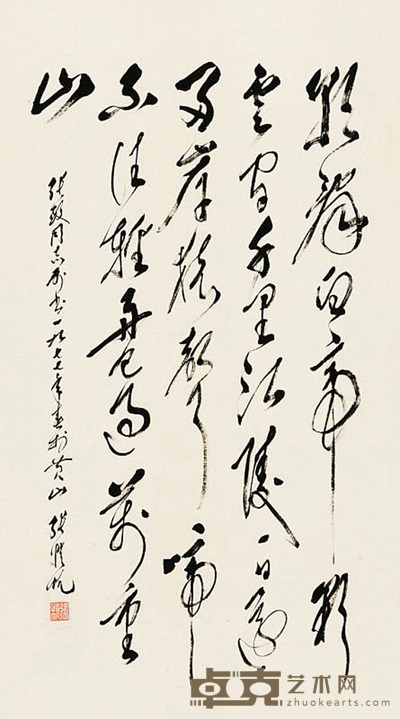 朝辭白帝彩
雲間千里江陵一日還
兩岸猿聲啼
不住輕舟已過萬重
山
同志屬書一九七七年春於黄山 張愷帆
卓克艺术网
zhuokearts.com